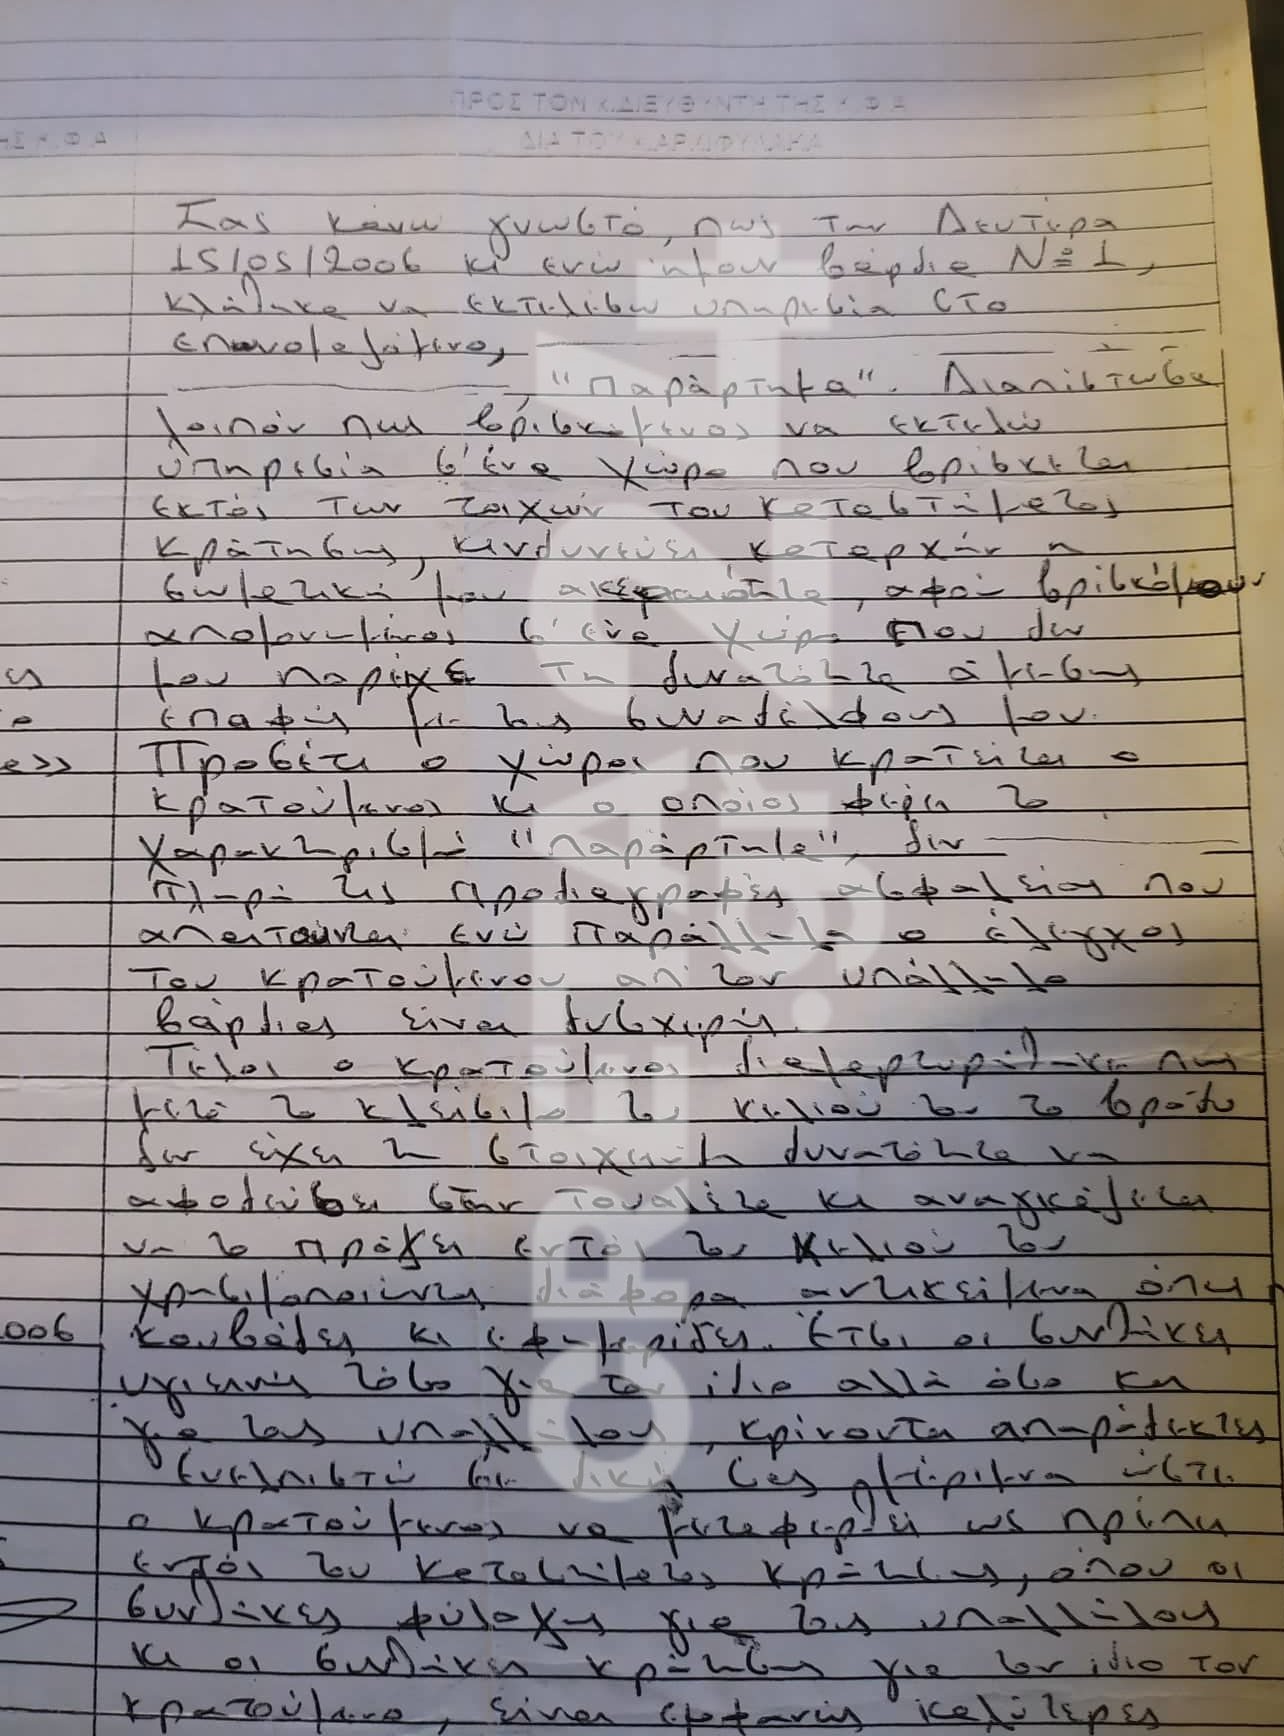 ΠΡΟΣ ΤΟΝ κ.ΔΙΕΥΘΥΝΤΗ ΤΗΣ Κ.Φ.Α
ΔΙΑ ΤΟΥ κ.ΑΡΧΙΦΥΛΑΚΑ
Σας κάνω γνωστό, πως την Δευτέρα
15/05/2006 κι ενώ ήμουν βάρδια Nº 1,
κλήθηκα να εκτελέσω υπηρεσία στο
επονομαζόμενο,
, "Παράρτημα". Διαπίστωσα
λοιπόν πως βρισκόμενος να εκτελώ
υπηρεσία σ'ένα χώρο που βρίσκεται
εκτός των τειχών του καταστήματος
κράτησης, κινδυνεύει καταρχήν η
σωματική μου ακεραιότητα, αφού βρισκόμουν
απομονωμένος σ'ένα χώρο που δεν
μου παρείχε τη δυνατότητα άμεσης
επαφής με τους συναδέλφους μου.
Προσέτι ο χώρος που κρατείται ο
κρατούμενος κι ο οποίος φέρει το
χαρακτηρισμό "παράρτημα", δεν
πληρά τις προδιαγραφές ασφαλείας που
απαιτούνται ενώ παράλληλα ο έλεγχος
του κρατούμενου απ' τον υπάλληλο
βάρδιας είναι δυσχερής.
Τέλος ο κρατούμενος διαμαρτυρήθηκε πως
μετά το κλείσιμο του κελιού του το βράδυ
δεν έχει τη στοιχειώδη δυνατότητα να
αφοδεύσει στην τουαλέτα κι αναγκάζεται
να το πράξει εντός του κελιού του
χρησιμοποιώντας διάφορα αντικείμενα όπως
κουβάδες κι εφημερίδες. Έτσι οι συνθήκες
υγιεινής τόσο για τον ίδιο αλλά όσο και
για τους υπαλλήλους, κρίνονται απαράδεκτες
Ευελπιστώ σε δική σας μέριμνα ώστε
ο κρατούμενος να μεταφερθεί ως πρέπει
εντός του καταστήματος κράτησης, όπου οι
συνθήκες φύλαξης για τους υπαλλήλους
κι οι συνθήκες κράτησης για τον ίδιο τον
κρατούμενο, είναι εμφανώς καλύτερες
006
CRETAONE.gr